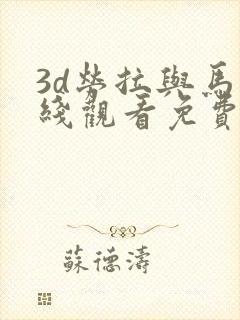 3d勞拉與馬
綫觀看免費
蘇德濤